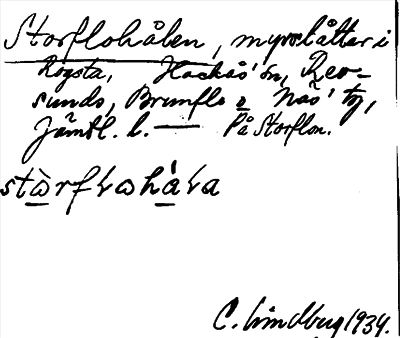 Storflohålen, myrslåtter i
Rogsta, Hackås' sn, Rev-
sunds, Brunflo o Näs' tg,
Jämtl. l. — På Storflon.
stàrfɾwháɾa
C. Lindberg 1934.